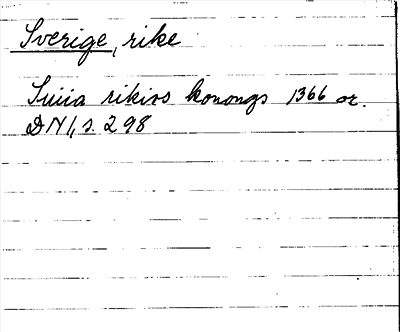 Sverige, rike
Suiia rikios konongs 1366 or.
DN I, s. 298